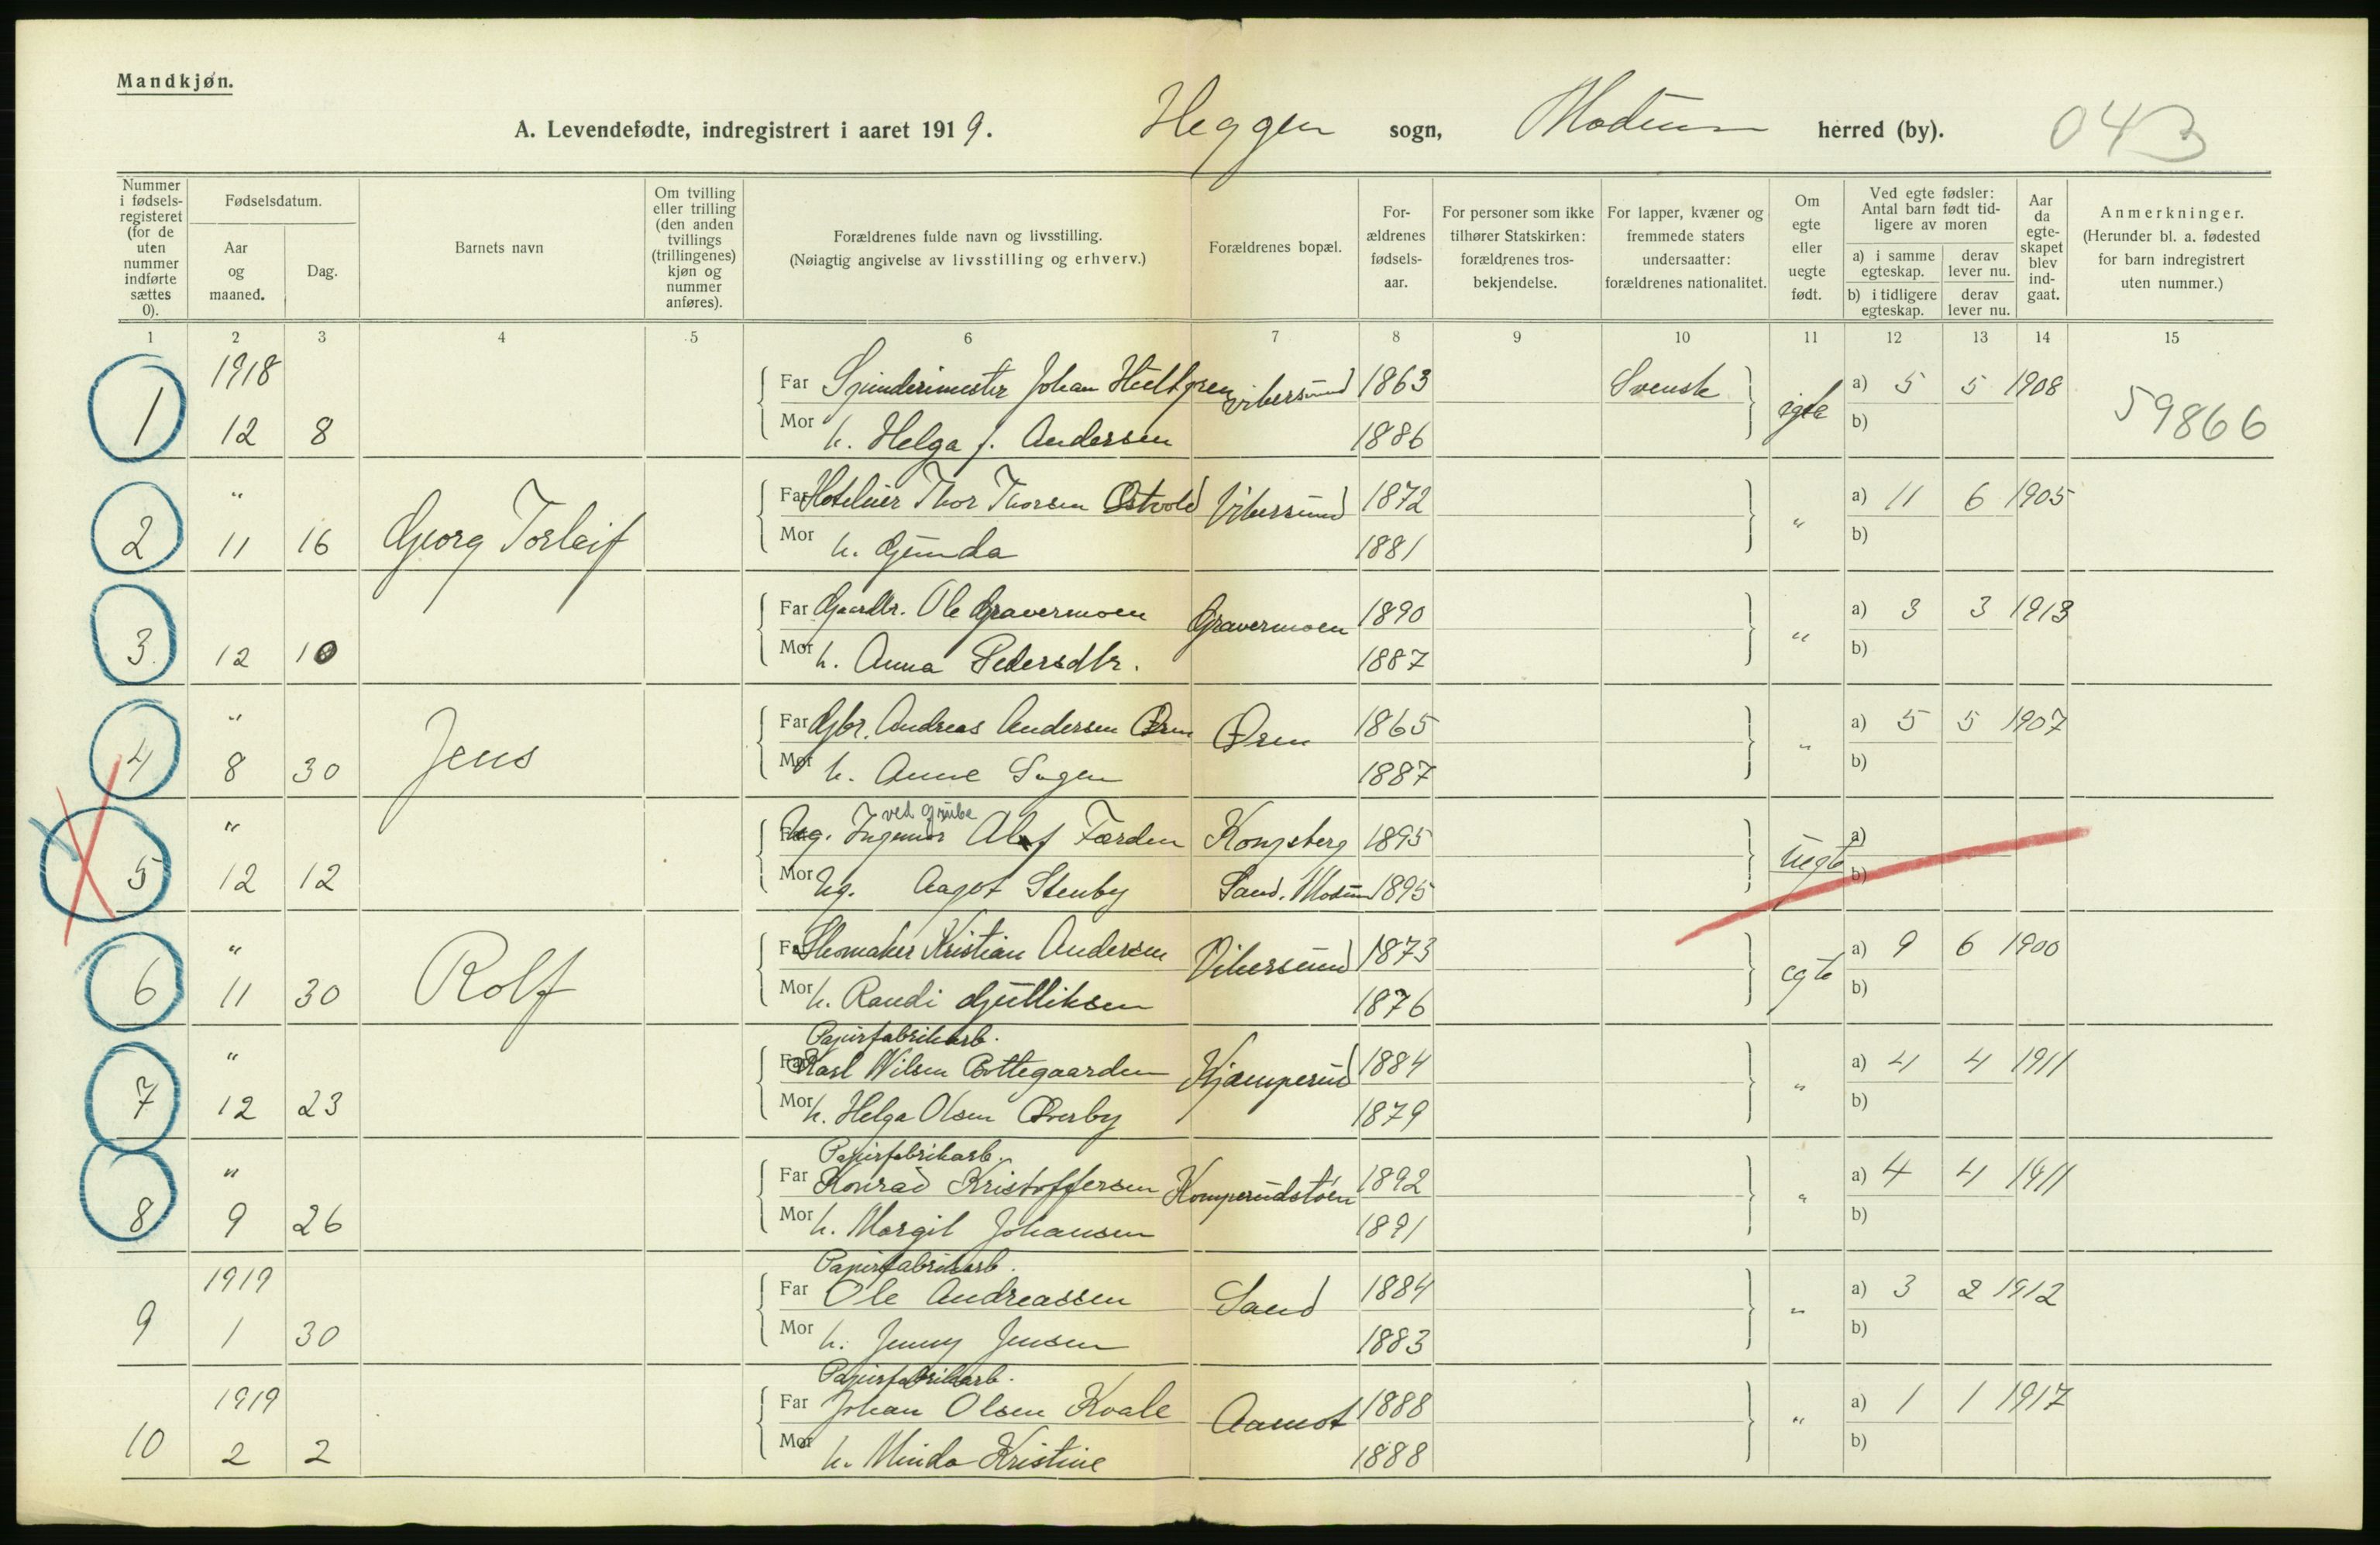 Mandkjøn.
A. Levendefødte, indregistrert i aaret 1919. Heggen sogn, Modum herred (by). 043
Nummer i fødsels-registeret (for de uten nummer indførte sættes 0).
Fødselsdatum.
Aar og maaned.
Dag.
Barnets navn
Om tvilling eller trilling (den anden tvillings (trillingenes) kjøn og nummer anføres).
Forældrenes fulde navn og livsstilling.
(Nøiagtig angivelse av livsstilling og erhverv.)
Forældrenes bopæl.
For-ældrenes fødsels-aar.
For personer som ikke tilhører Statskirken: forældrenes tros-bekjendelse.
For lapper, kvæner og fremmede staters undersaatter: forældrenes nationalitet.
Om egte eller uegte født.
Ved egte fødsler: Antal barn født tid-ligere av moren
a) i samme egteskap. derav lever nu.
b) i tidligere egteskap. derav lever nu.
Aar da egte-skapet blev ind-gaat.
Anmerkninger.
(Herunder bl. a. fødested for barn indregistrert uten nummer.)
1 2 3 4 5 6 7 8 9 10 11 12 13 14 15
1918 Far Spinderimester Johan Hultgren Vikersund 1863 Svensk egte a) 5 5 1908 59866
1 12 8 Mor h. Helga f. Andersen 1886 b)
" Far Hotelier Thor Thorsen Ostvold Vikersund 1872 " a) 11 6 1905
2 11 16 Georg Torleif Mor h. Gunda 1881 b)
Far Gaardbr. Ole Gravermoen Gravermoen 1890 " a) 3 3 1913
3 12 10 Mor h. Anna Pedersdtr. 1887 b)
" Far Gbr. Andreas Andersen Øren Øren 1865 " a) 5 5 1907
4 8 30 Jens Mor h. Anne 1887 b)
ved grube
" Far Ug. Ingeniør Alf Førden Kongsberg 1895 uegte a)
5 12 12 Mor Ug. Aagot Stenby Sand. Modum 1895 b)
" Far Skomaker Kristian Andersen Vikersund 1873 egte a) 9 6 1900
6 11 30 Rolf Mor h. Randi Gulliksen 1876 b)
Papirfabrikarb.
" Far Karl Nilsen Bottegaarden Kjæmperud 1884 " a) 4 4 1911
7 12 23 Mor h. Helga Olsen Øverby 1879 b)
Papirfabrikarb.
" Far Konrad Kristoffersen Komperudstøen 1892 " a) 4 4 1911
8 9 26 Mor h. Margit Johansen 1891 b)
Papirfabrikarb.
1919 Far Ole Andreassen Sand 1884 " a) 3 2 1912
9 1 30 Mor h. Jenny Jensen 1883 b)
Papirfabrikarb.
1919 Far Johan Olsen Kvale Aamot 1888 " a) 1 1 1917
10 2 2 Mor h. Minda Kristine 1888 b)